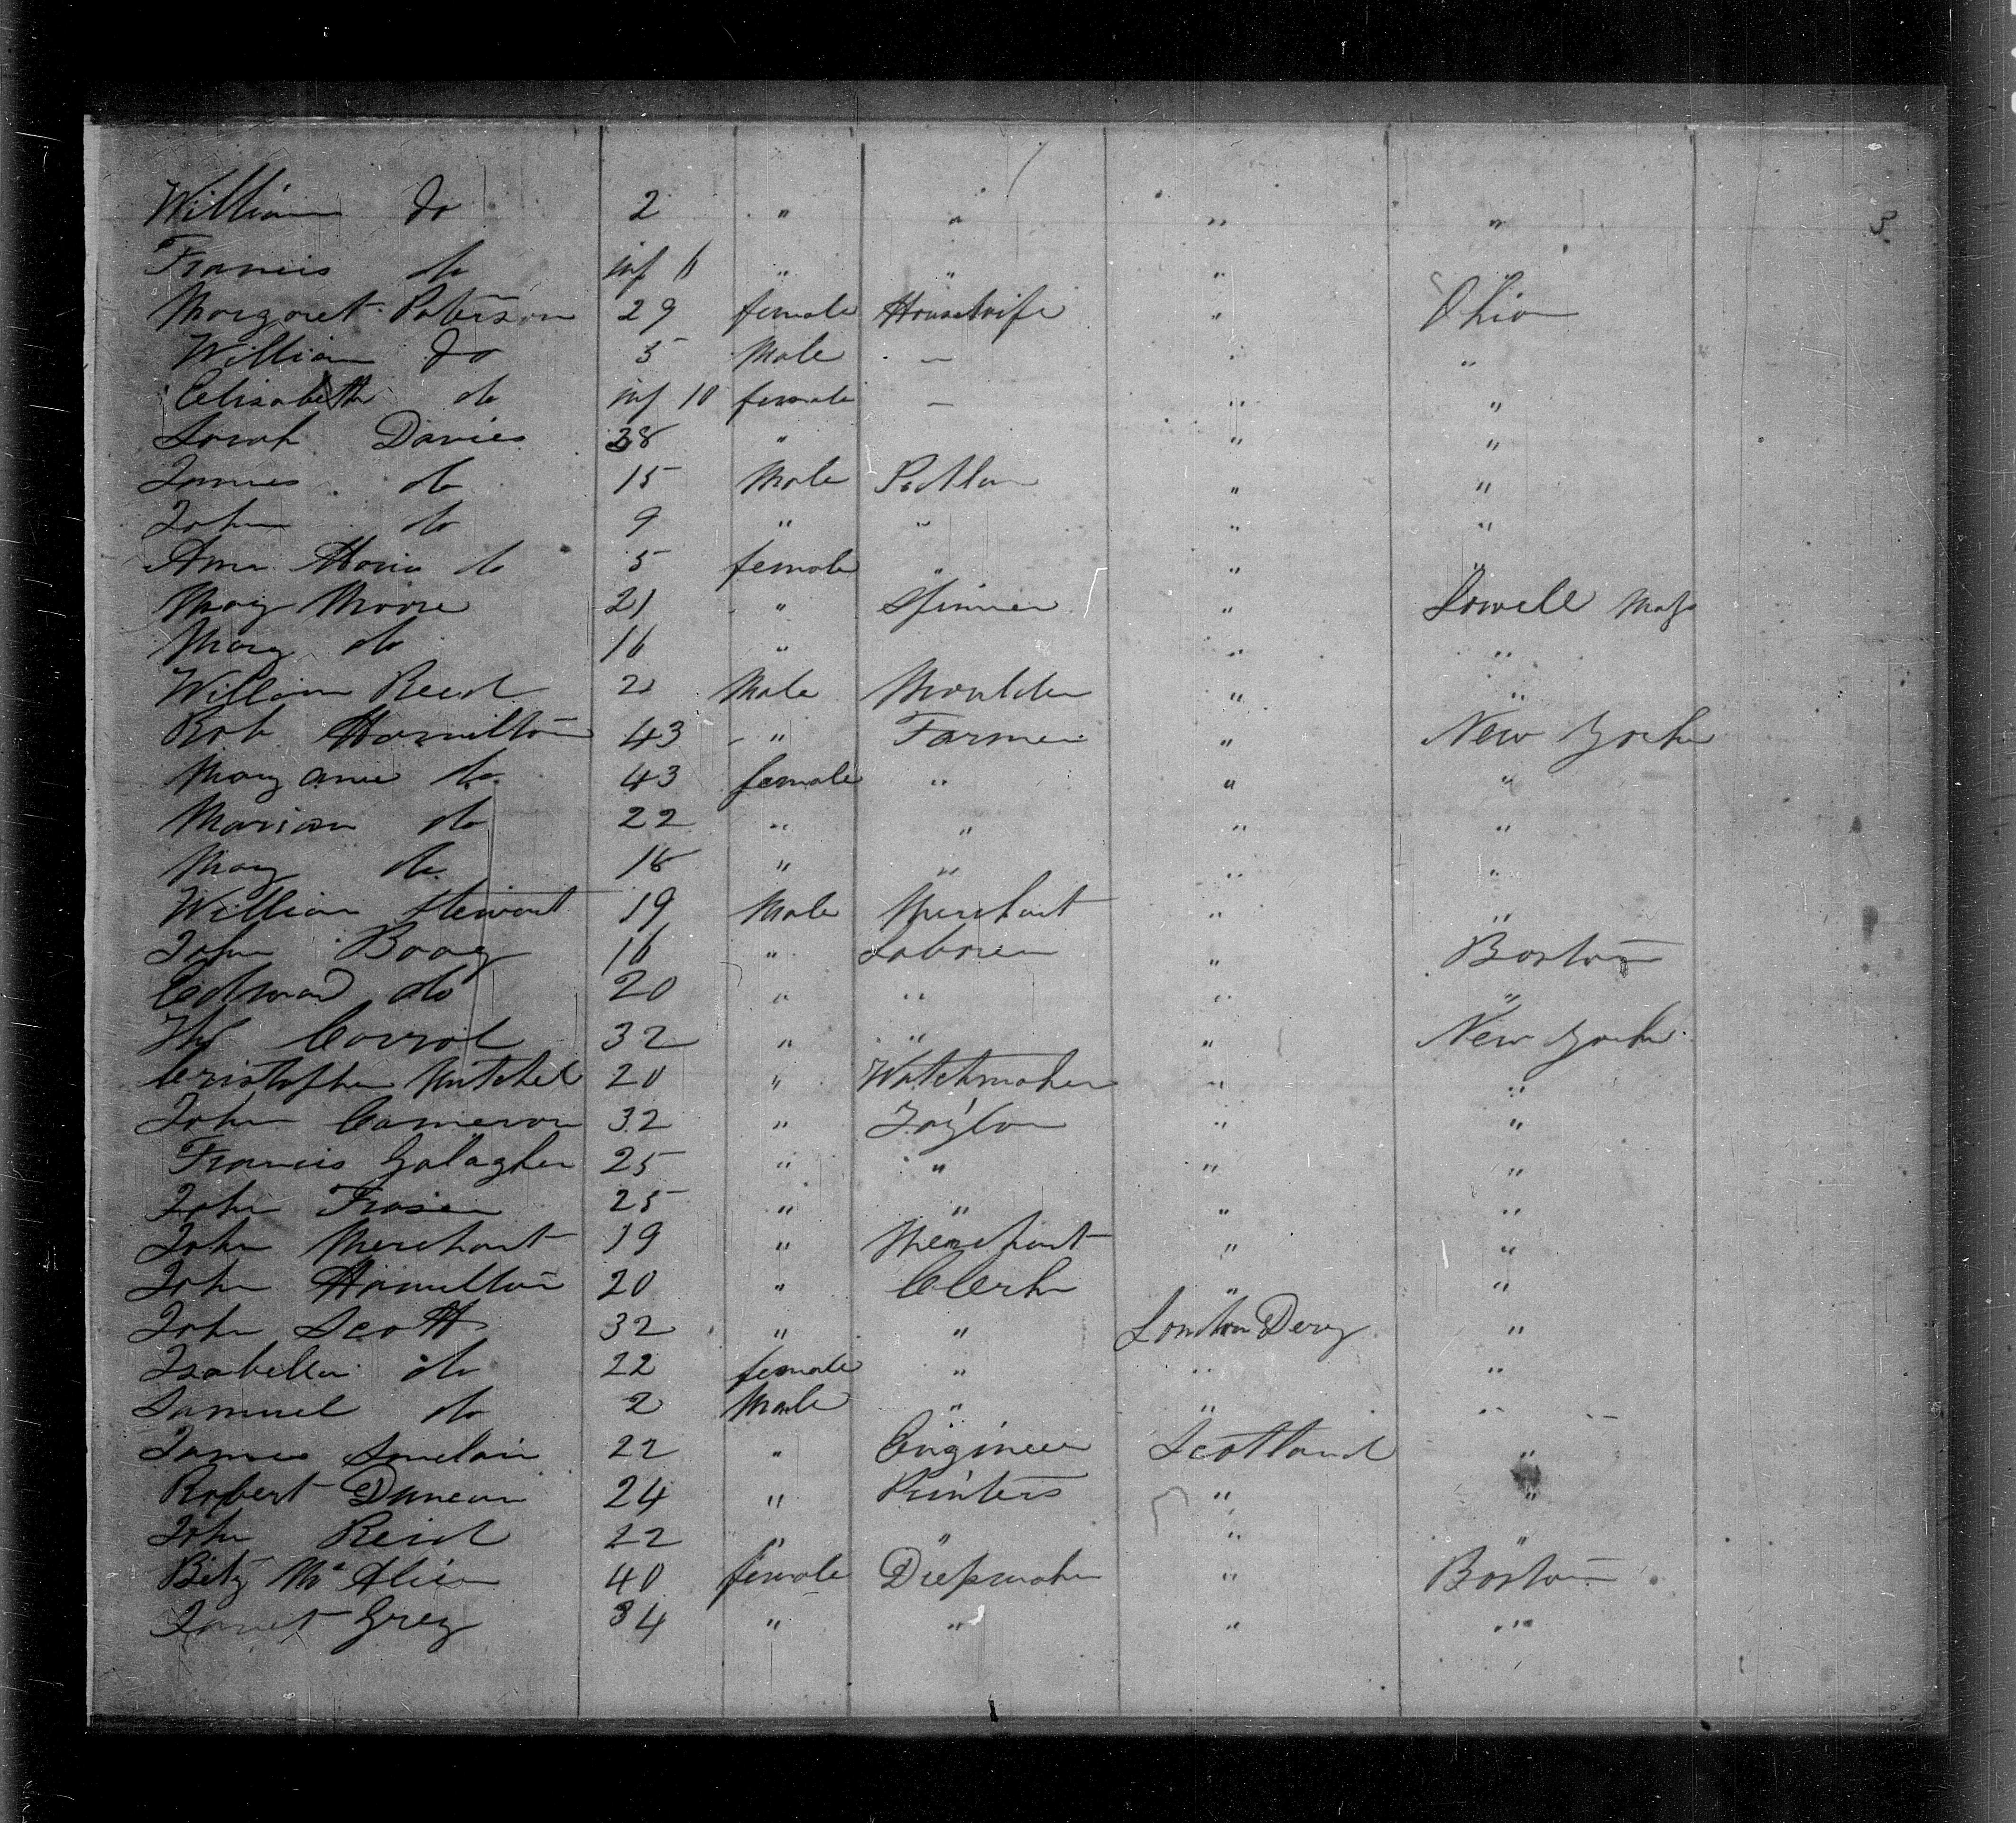 3
William do 2 " " " "
Francis do inf 6 " " "
Margaret Paterson 29 female Housewife " Ohio
William do 5 Male — " "
Elisabeth do inf 10 female — " "
Sarah Davies 38 " " "
James do 15 Male " "
John do 9 " " " "
Ann Maria do 5 female " " "
Mary Moore 21 " Spinner " Lowell Mass
Mary do 16 " " "
William Reid 2 Male Moulder " "
Rob Hamilton 43 " Farmer " New York
Mary ann do 43 female " " "
Marian do 22 " " " "
Mary do 18 " " " "
William Stewart 19 Male Merchant " "
John Boag 16 " Laborer " Boston
Edward do 20 " " " "
Carrol 32 " " " New York
Cristopher Mitchel 20 " Watchmaker " "
John Cameron 32 " Taylor " "
Francis Galagher 25 " " " "
John Fraser 25 " " " "
John Merchant 19 " Merchant " "
John Hamilton 20 " Clerk " "
John Scott 32 " " London Dery "
Isabella do 22 female " " "
Samuel do 2 Male " " "
James Sinclair 22 " Engineer Scotland "
Robert Duncan 24 " Printers " "
John Reid 22 " " " "
Betzy Mc 40 female " Boston
Janet Grey 34 " " " "